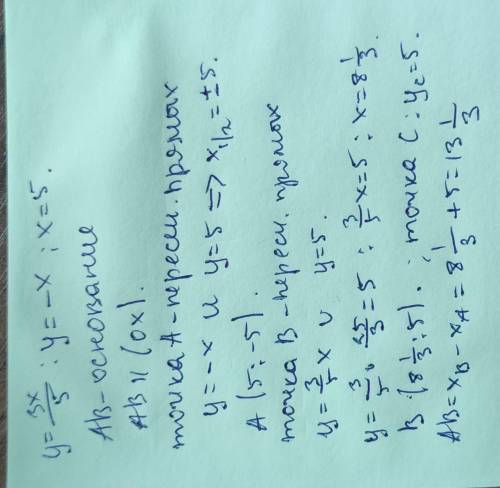 y=3x/5 ; y=-x ; x=5.
AB-основание
AB || (OX).
точка A-пересеч. прямых
y=-x и y=5 => x1/2=±5.
A (5;-5)
точка B-пересеч. прямых
y=3/5x и y=5.
y=3/5 · 25/3=5 ; 3/5x=5 ; x=8 1/3.
B (8 1/3; 5). ; точка C: yc=5.
AB=xB-xA=8 1/3+5=13 1/3